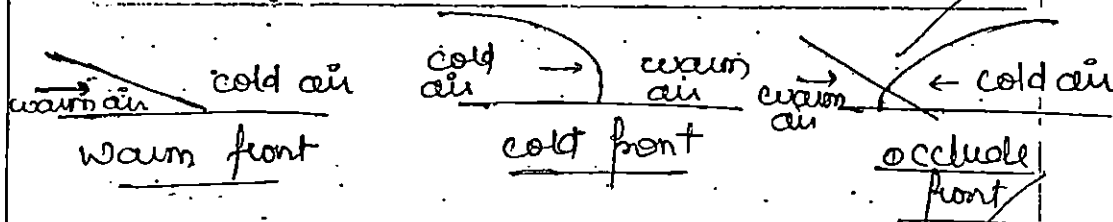 warm air cold air
warm front
cold air → warm air
cold front
warm air ← cold air
occlude
front